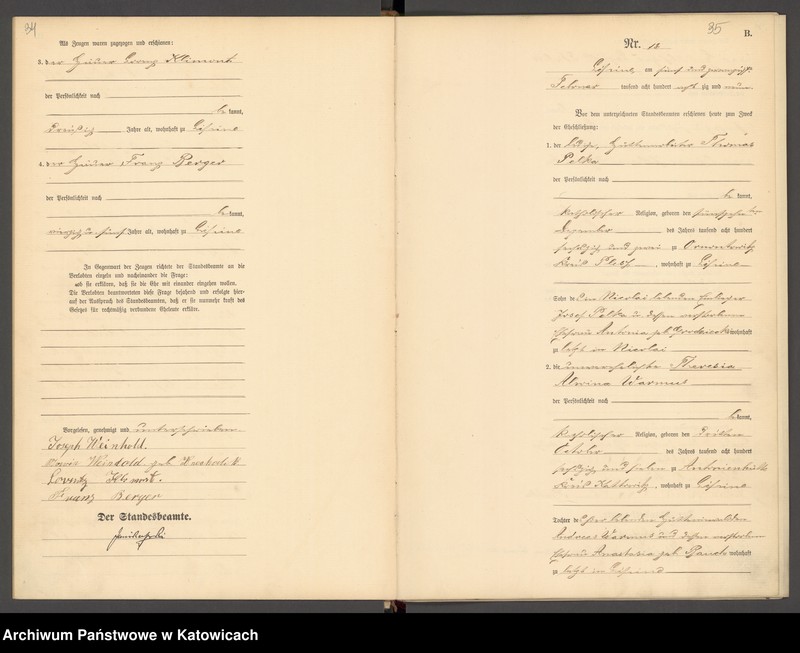 34
Als Zeugen waren zugezogen und erschienen:
3. der Häuer Lorenz Klimont
der Persönlichkeit nach
be kannt,
dreißig Jahre alt, wohnhaft zu
4. der Häuer Franz Berger
der Persönlichkeit nach
be kannt,
fünf Jahre alt, wohnhaft zu
In Gegenwart der Zeugen richtete der Standesbeamte an die
Verlobten einzeln und nacheinander die Frage:
ob sie erklären, daß sie die Ehe mit einander eingehen wollen.
Die Verlobten beantworteten diese Frage bejahend und erfolgte hier-
auf der Ausspruch des Standesbeamten, daß er sie nunmehr kraft des
Gesetzes für rechtmäßig verbundene Eheleute erkläre.
Vorgelesen, genehmigt und unterschrieben
Joseph Weinhold.
Weinhold geb.
Klimont.
Franz Berger
Der Standesbeamte.
35
B.
Nr. 18
am fünf und zwanzigsten
Februar tausend acht hundert acht zig und neun
Vor dem unterzeichneten Standesbeamten erschienen heute zum Zweck
der Eheschließung:
1. der Thomas
Polka
der Persönlichkeit nach
be kannt,
katholischer Religion, geboren den fünfzehnten
Dezember des Jahres tausend acht hundert
sechszig und zwei zu
Kreis Pless, wohnhaft zu
Sohn des in Nicolai lebenden
Josef Polka und dessen verstorbenen
Ehefrau Antonia geb. wohnhaft
zu letzt in Nicolai
2. die unverehelichte Theresia
Alwina Warmus
der Persönlichkeit nach
be kannt,
katholischer Religion, geboren den dritten
October des Jahres tausend acht hundert
sechszig und sieben zu Antonienhütte
Kreis Kattowitz, wohnhaft zu
Tochter des lebenden
Andreas Warmus und dessen verstorbenen
Ehefrau Anastasia geb. wohnhaft
zu letzt in
Archiwum Państwowe w Katowicach